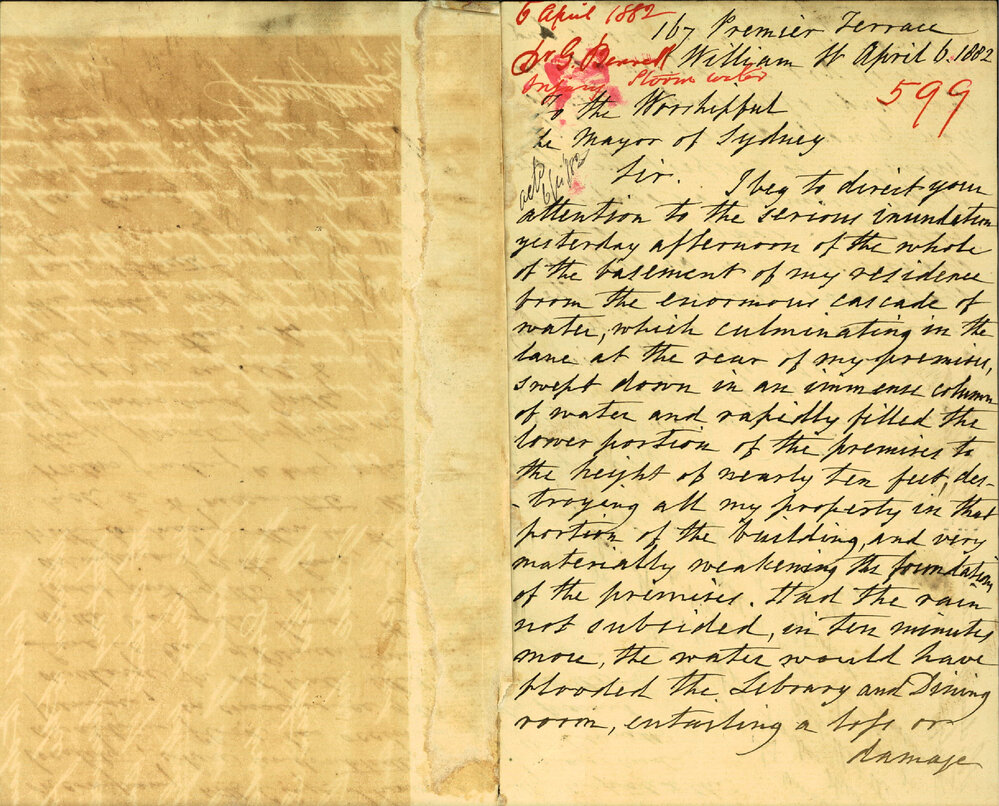 6 April 1882
167 Premier Terrace
Dr G. Bennett William St April 6. 1882
Injury Storm water
599
To the Worshipful
he Mayor of Sydney
Sir. I beg to direct your
attention to the serious inundation
yesterday afternoon of the whole
of the basement of my residence
from the enormous cascade of
water, which culminating in the
lane at the rear of my premises,
swept down in an immense column
of water and rapidly filled the
lower portion of the premises to
the height of nearly ten feet, des-
-troying all my property in that
portion of the building, and very
materially weakening the foundation
of the premises. Had the rain
not subsided, in ten minutes
more, the water would have
flooded the Library and Dining
room, entailing a loss or
damage